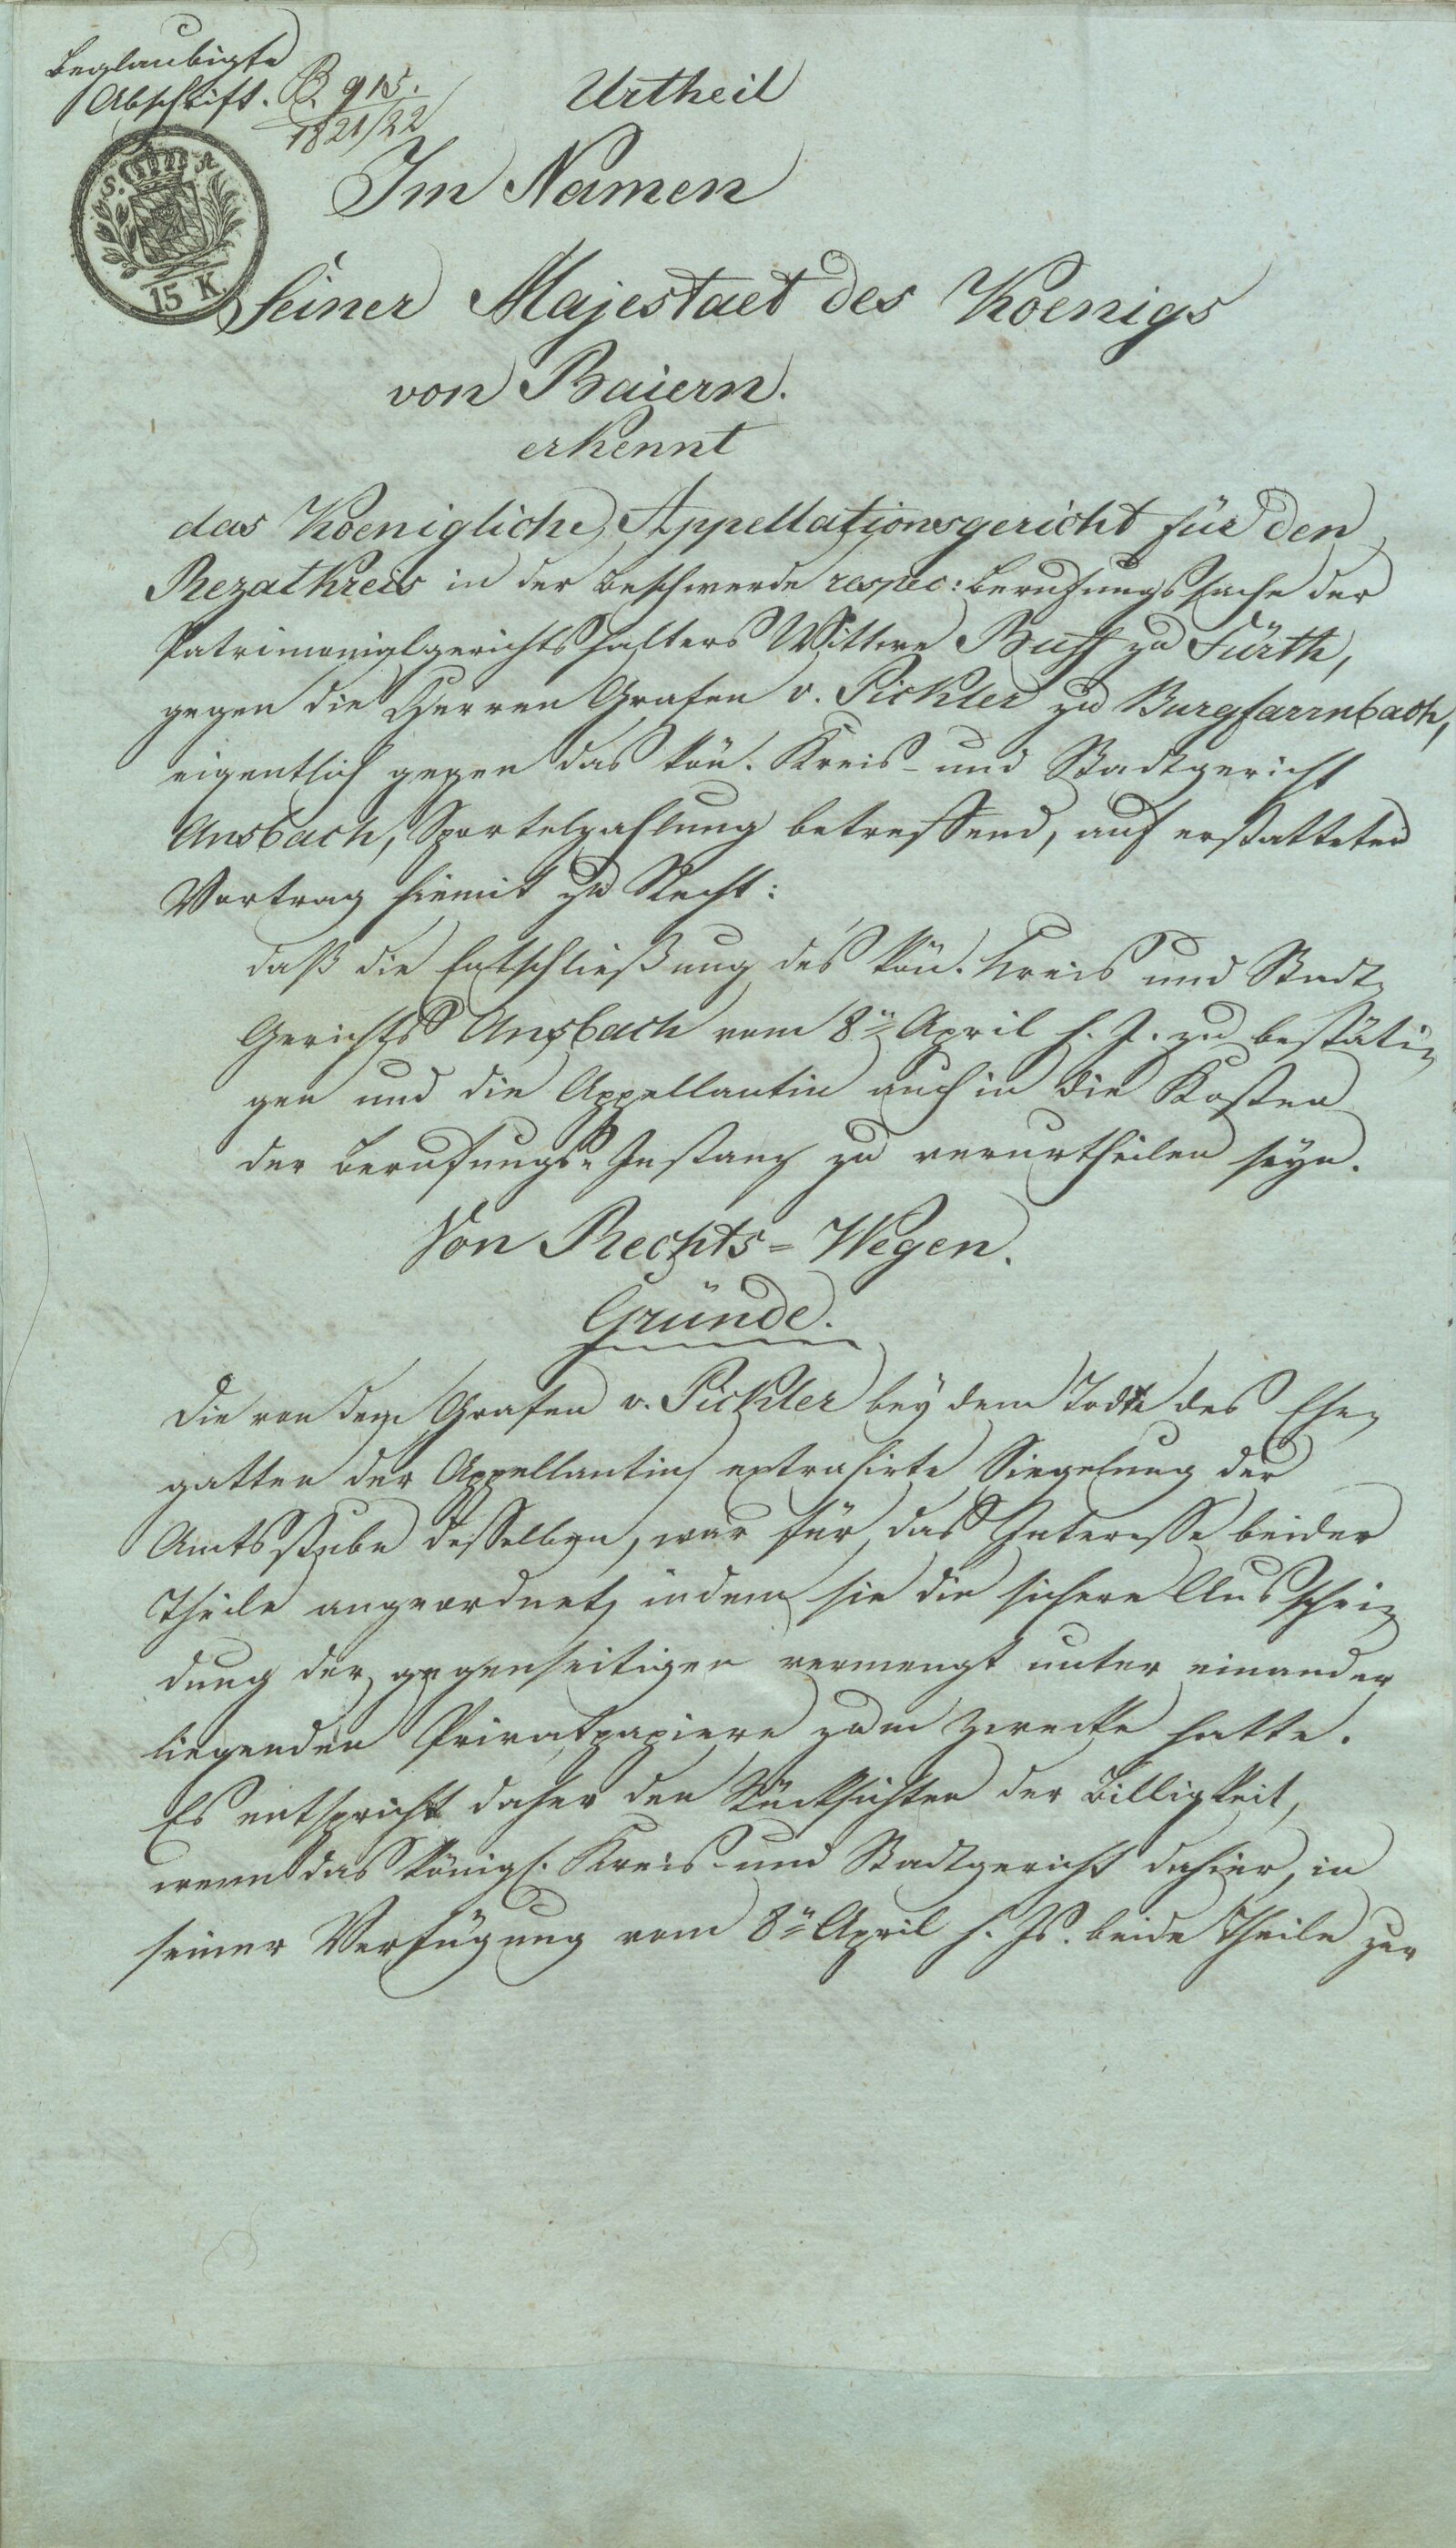 Beglaubigte
Abschrift. B. 915.
1821/22
Urtheil
Im Namen
S. A.
15 K.
Seiner Majestaet des Koenigs
von Baiern.
erkennt
das Koenigliche Appellationsgericht für den
Rezatkreis in der Beschwerde respec: Berufungssache der
Patrimonialgerichtshalters Wittwe Buff zu Fürth,
gegen die Herren Grafen v. Pickler zu Burgfarrnbach,
eigentlich gegen das kön. Kreis- und Stadtgericht
Ansbach, Sportelzahlung betreffend, auf erstatteten
Vortrag hiemit zu Recht:
daß die Entschließung des kön. Kreis und Stadt-
Gerichts Ansbach vom 8n April h. J. zu bestäti-
gen und die Appellantin auch in die Kosten
der Berufungs-Instanz zu verurtheilen seyn.
Von Rechts-Wegen.
Gründe.
Die von dem Grafen v. Pickler bey dem Tode des Ehe-
gatten der Appellantin extrahirte Siegelung der
Amtsstube desselben, war für das Interesse beider
Theile angeordnet, indem sie die sichere Ausschei-
dung der gegenseitigen vermengt unter einander
liegenden Privatpapiere zum Zwecke hatte.
Es entspricht daher den Rücksichten der Billigkeit,
wenn das königl. Kreis- und Stadtgericht dahier, in
seiner Verfügung vom 8n April h. Js. beide Theile zur